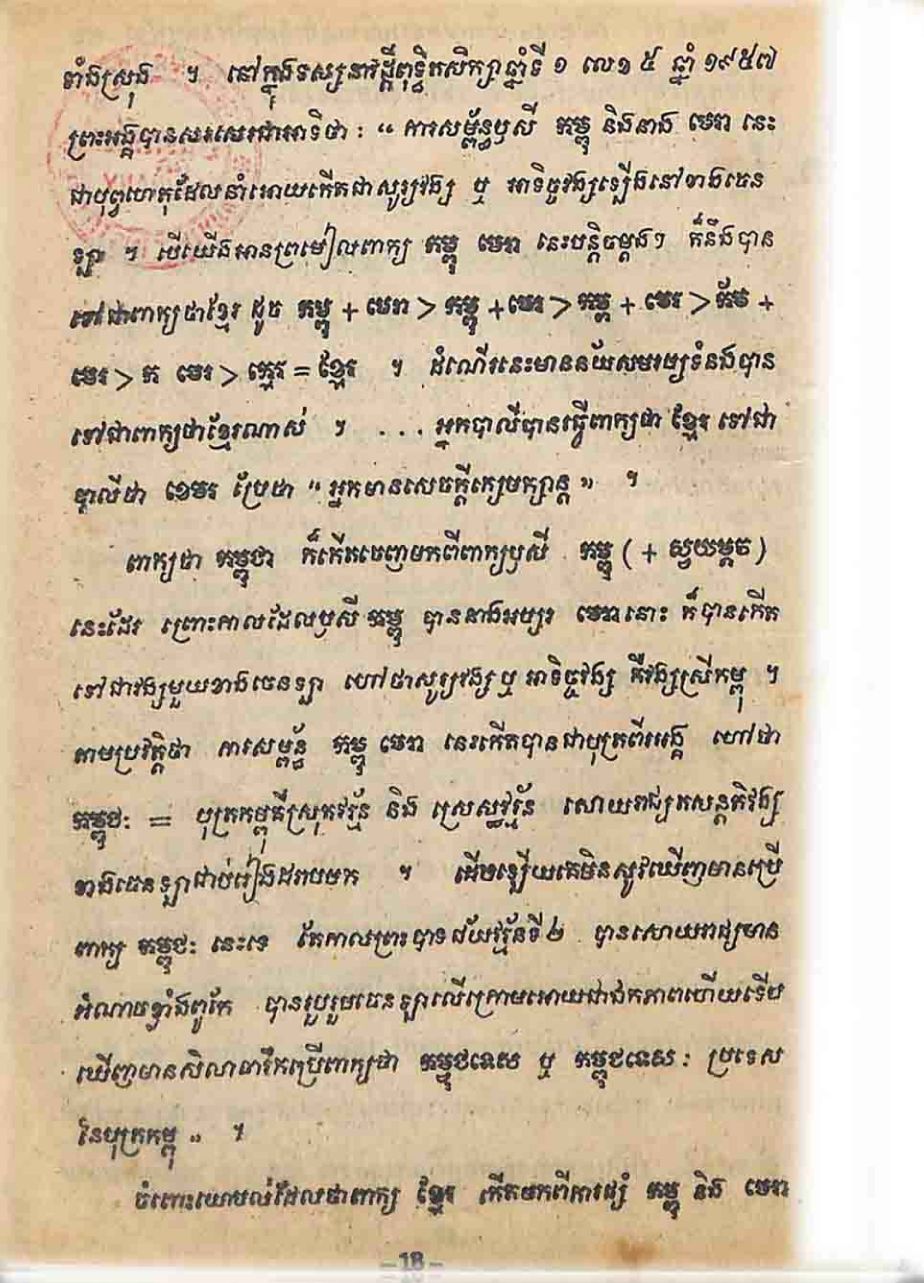 ទាំងស្រុង ។ នៅក្នុងទស្សនាវដ្តីពុទ្ធិកសិក្សាឆ្នាំទី ១ លេខ ៥ ឆ្នាំ ១៩៥៧
ព្រះអង្គបានសរសេរជាអាទិថា : “ ការសម្ព័ន្ធឫសី កម្ពុ និងនាង មេរា នេះ
ជាបុព្វហេតុដែលនាំអោយកើតជាសូរ្យវង្ស ឬ អាទិច្ចវង្សឡើងនៅខាងចេន
ឡា ។ បើយើងអានព្រមៀលពាក្យ កម្ពុ មេរា នេះបន្តិចម្តងៗ ក៏នឹងបាន
ទៅជាពាក្យថាខ្មែរ ដូច កម្ពុ + មេរា > កម្ពុ + មេរ > កម្ព + មេរ > ក័ម +
មេរ > ក មេរ > ក្មេរ = ខ្មែរ ។ ដំណើរនេះមានន័យសមរម្យទំនងបាន
ទៅជាពាក្យថាខ្មែរណាស់ ។ . . . អ្នកបាលីបានធ្វើពាក្យថា ខ្មែរ ទៅជា
បាលីថា ខេមរ ប្រែថា “ អ្នកមានសេចក្តីក្សេមក្សាន្ត ” ។
ពាក្យថា កម្ពុជា ក៏កើតចេញមកពីពាក្យឫសី កម្ពុ ( + ស្វយម្ភុវ )
នេះដែរ ព្រោះកាលដែលឫសី កម្ពុ បាននាងអប្សរ មេរានោះ ក៏បានកើត
ទៅជាវង្សមួយខាងចេនឡា ហៅថាសូរ្យវង្ស ឬ អាទិច្ចវង្ស គឺវង្សស្រីកម្ពុ ។
តាមប្រវត្តិថា ការសម្ពន្ធ័ កម្ពុ មេរា នេះកើតបានជាបុត្រពីរអង្គ ហៅថា
កម្ពុជៈ = បុត្រកម្ពុគឺស្រុតវរ្ម័ន និង ស្រេស្ឋវរ្ម័ន សោយរាជ្យតសន្តតិវង្ស
ខាងចេនឡាជាប់រៀងដរាបមក ។ ដើមឡើយគេមិនសូវឃើញមានប្រើ
ពាក្យ កម្ពុជៈ នេះទេ តែកាលព្រះបាទជ័យវរ្ម័នទី ២ បានសោយរាជ្យមាន
អំណាចខ្លាំងពូកែ បានរួបរួមចេនឡាលើក្រោមអោយជាឯកភាពហើយទើប
ឃើញមានសិលាចារឹកប្រើពាក្យថា កម្វុជទេស ឬ កម្ពុជទេស : ប្រទេស
នៃបុត្រកម្ពុ ” ។
ចំពោះយោបល់ដែលថាពាក្យ ខ្មែរ កើតមកពីការផ្សំ កម្ពុ និង មេរា
– 18 –